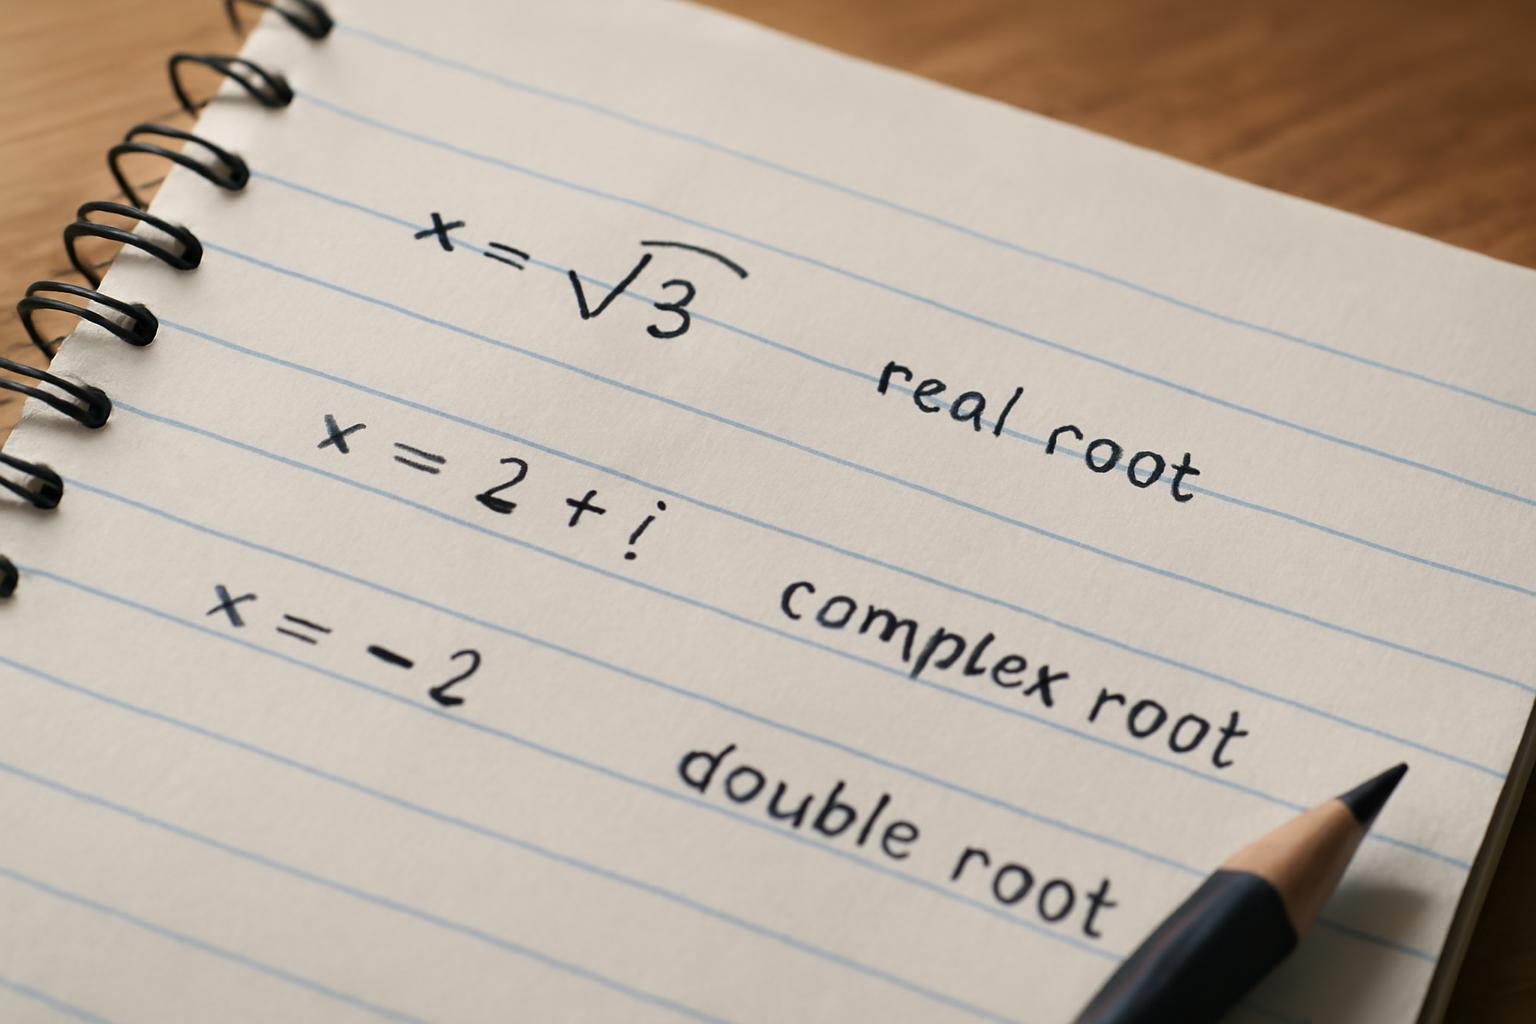 x = √3 real root
x = 2 + i complex root
x = -2 double root